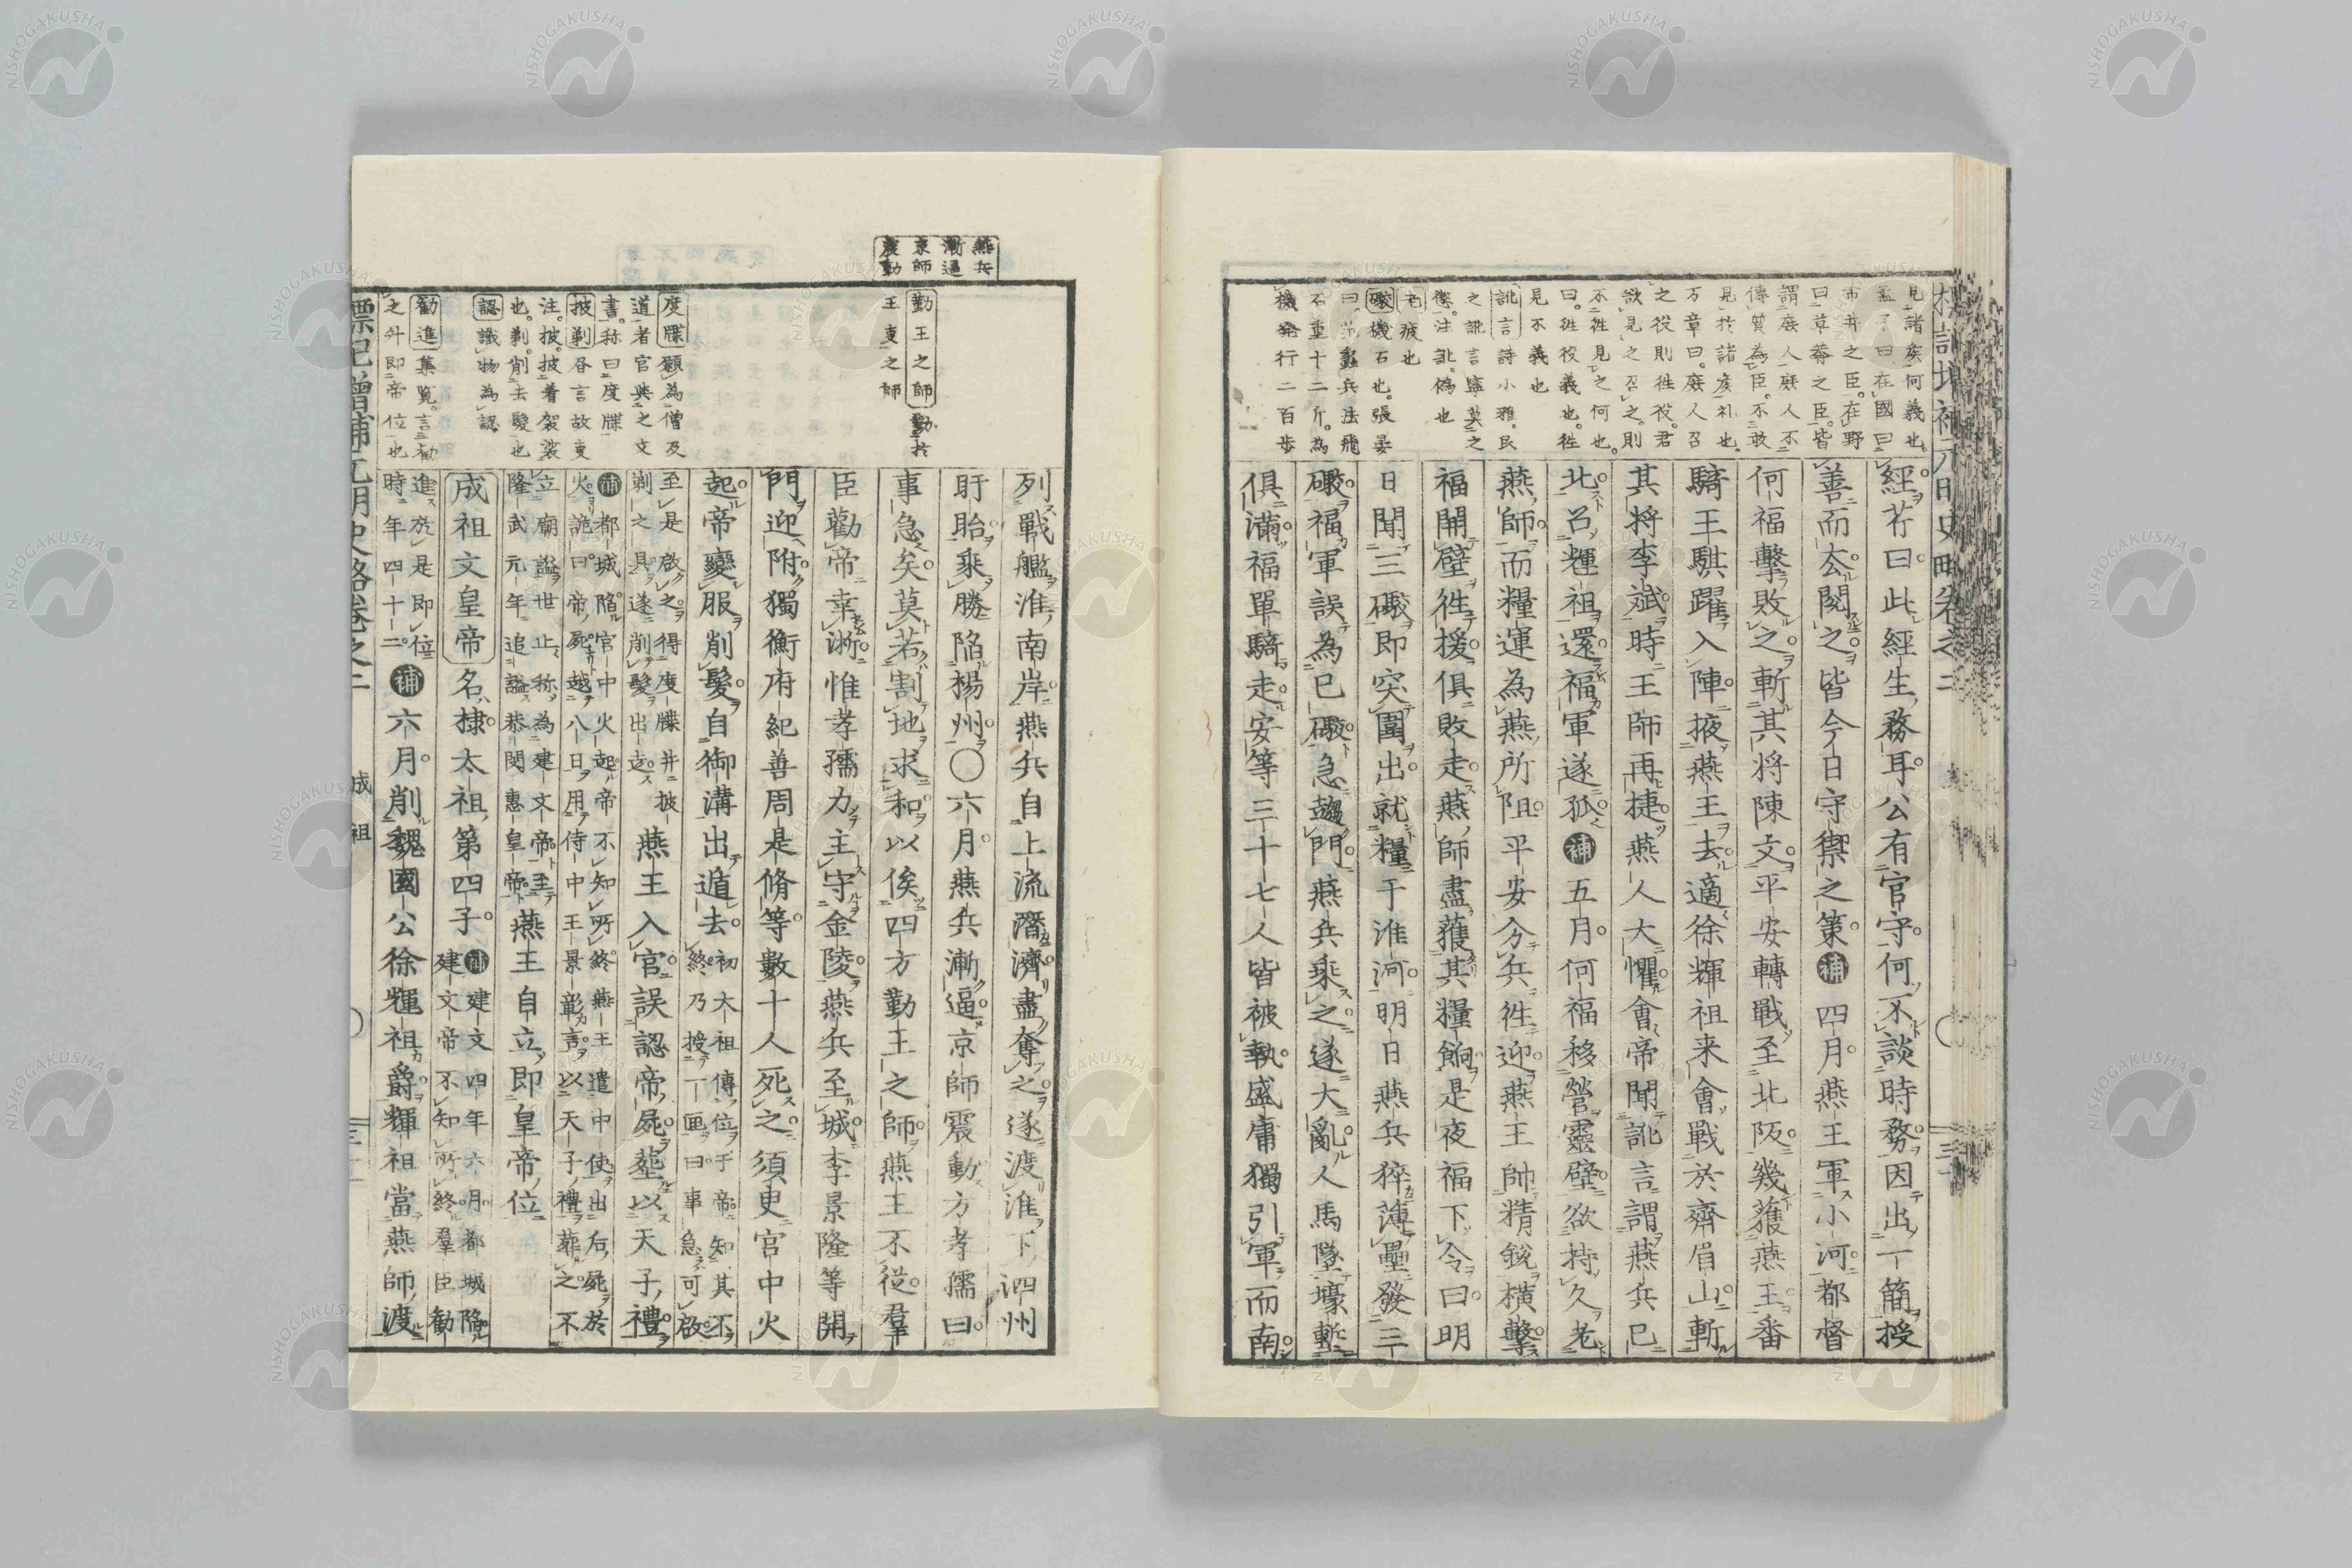 見諸矦何義也
孟子曰在國曰
市井之臣在野
曰草莽之臣皆
謂庶人庶人不
傳質為臣不敢
見於諸矦礼也
万章曰庶人召
之役則徃役君
欲見之召之則
不徃見之何也
曰徃役義也徃
見不義也
訛言詩小雅民
之訛言寧莫之
懲注訛偽也
老疲也
礮機石也張晏
曰范蠡兵法飛
石重十二斤為
機発行二百歩
經若曰此經生務耳公有官守何不談時務因出一簡授
善而去閱之皆今日守禦之策補四月燕王軍小河都督
何福擊敗之斬其將陳文平安轉戰至北阪幾獲燕王番
騎王騏躍入陣掖燕王去適徐輝祖来會戰於齊眉山斬
其將李斌時王師再捷燕人大懼會帝聞訛言謂燕兵已
北召輝祖還福軍遂孤補五月何福移營靈壁欲持久老
燕師而糧運為燕所阻平安分兵徃迎燕王帥精銳橫擊
福開壁徃援俱敗走燕師盡獲其糧餉是夜福下令曰明
日聞三礮即突圍出就糧于淮河明日燕兵猝薄壘發三
礮福軍誤為已礮急趨門燕兵乘之遂大亂人馬墜壕塹
俱滿福單騎走安等三十七人皆被執盛庸獨引軍而南
燕兵
漸逼
京師
震動
勤王之師勤於
王事之師
度牒願為僧及
道者官與之文
書称曰度牒
披剃昏言故事
注披披着袈裟
也剃削去髮也
認識物為認
勸進集覧言勸
之升即帝位也
列戰艦淮南岸燕兵自上流潛濟盡奪之遂渡淮下泗州
盱眙乘勝陷楊州〇六月燕兵漸逼京師震動方孝孺曰
事急矣莫若割地求和以俟四方勤王之師燕王不從羣
臣勸帝幸浙惟孝孺力主守金陵燕兵至城李景隆等開
門迎附獨衡府紀善周是脩等數十人死之須叓宮中火
起帝變服削髮自御溝出遁去初太祖傳位于帝知其不
終乃授一匣曰事急可啟
至是啟之得度牒并披
剃之具遂削髮出走燕王入宮誤認帝屍葬以天子禮
補都城陷宮中火起帝不知所終燕王遣中使出后屍於
火詭曰帝屍越八日用侍中王景彰言以天子禮葬之不
立廟謚世止称為建文帝至
隆武元年追謚恭閔惠皇帝燕王自立即皇帝位
成祖文皇帝名棣太祖第四子補建文四年六月都城陷
建文帝不知所終羣臣勸
進於是即位
時年四十二補六月削魏國公徐輝祖爵輝祖當燕師渡
標記增補元明史略卷之二
成祖